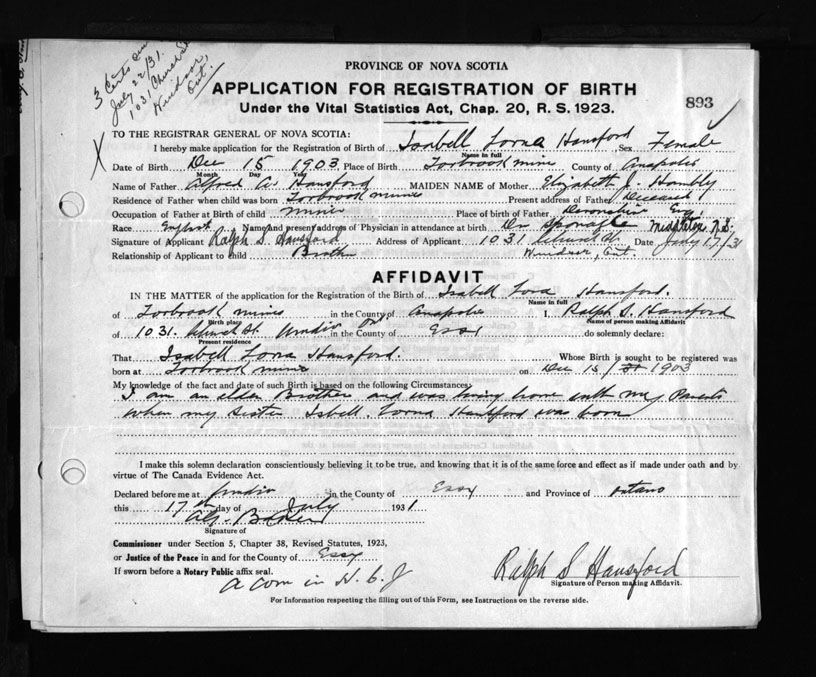 3 Certs
July 22/31.
1031 Church St
Windsor,
Ont.
PROVINCE OF NOVA SCOTIA
APPLICATION FOR REGISTRATION OF BIRTH
Under the Vital Statistics Act, Chap. 20, R. S. 1923.
893
TO THE REGISTRAR GENERAL OF NOVA SCOTIA:
I hereby make application for the Registration of Birth of Isabell Lorna Hansford Sex Female
Name in full
Date of Birth Dec 15 1903 Place of Birth Torbrook mine County of Anapolis
Month Day Year
Name of Father Alfred W. Hansford MAIDEN NAME of Mother Elizabeth J. Hambly
Residence of Father when child was born Torbrook mines Present address of Father Deceased
Occupation of Father at Birth of child miner Place of birth of Father Devonshire Eng.
Race English Name and present address of Physician in attendance at birth Dr Sponagle Middleton N.S.
Signature of Applicant Ralph S. Hansford Address of Applicant 1031 Church St. Date July 17/31
Relationship of Applicant to child Brother Windsor, Ont.
AFFIDAVIT
IN THE MATTER of the application for the Registration of the Birth of Isabell Lora Hansford.
Name in full
of Torbrook mines in the County of Anapolis I, Ralph S. Hansford
Birth place Name of person making Affidavit
of 1031. Church St. Windsor Ont in the County of Essex do solemnly declare:
Present residence
That Isabell Lorna Hansford. Whose Birth is sought to be registered was
born at Torbrook mine on Dec 15/ 1903
My knowledge of the fact and date of such Birth is based on the following Circumstances:
I am an elder Brother and was living home with my Parents
when my sister Isbell. Lorna Hansford was born
I make this solemn declaration conscientiously believing it to be true, and knowing that it is of the same force and effect as if made under oath and by
virtue of The Canada Evidence Act.
Declared before me at Windsor in the County of Essex and Province of Ontario
this 17th day of July 1931
Signature of
Commissioner under Section 5, Chapter 38, Revised Statutes, 1923,
or Justice of the Peace in and for the County of Essex
If sworn before a Notary Public affix seal.
A Com in H. C. J
Ralph S Hansford
Signature of Person making Affidavit.
For Information respecting the filling out of this Form, see Instructions on the reverse side.